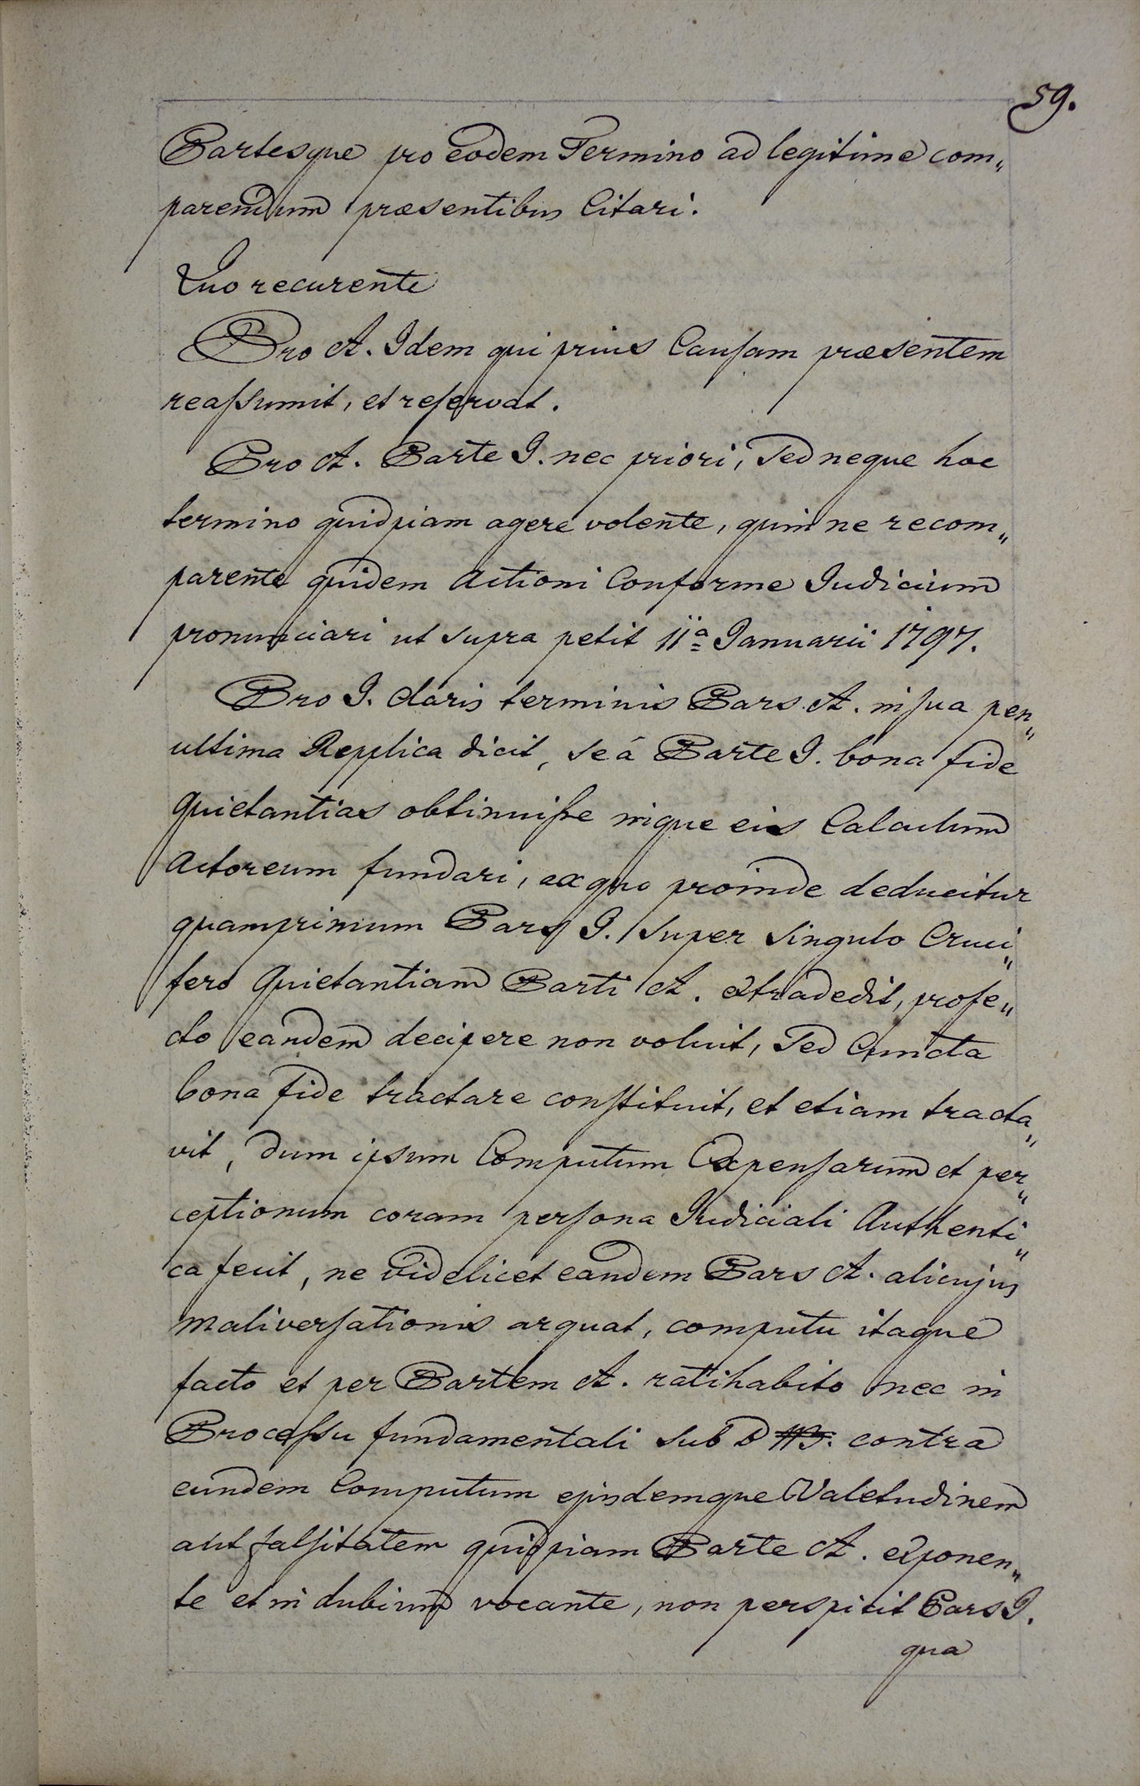 59.
Partesque pro eodem Termino ad legitime com„
parendum præsentibus Citari.
Quo recurente
Pro A. Idem qui prius Causam præsentem
reassumit, et reservat.
Pro A. Parte I. nec priori, sed neque hoc
termino quidpiam agere volente, quin ne recom„
parente quidem Actioni Conforme Judicium
pronunciari ut supra petit 11ª Januarii 1797.
Pro I. claris terminis Pars A. in sua pen„
ultima Replica dicit, se á Parte I. bona fide
Quietantias obtinuisse inque eis Calculum
Actoreum fundari, ex quo proinde deducitur
quamprimum Pars I. super singulo Cruci„
fero Quietantiam Parti A. extradedit, profe„
cto eandem decipere non voluit, sed Cuncta
bona fide tractare constituit, et etiam tracta„
vit, dum ipsum Computum Expensarum et per„
ceptionum coram persona Judiciali Authenti„
ca fecit, ne videlicet eandem Pars A. alicujus
maliversationis arguat, computu itaque
facto et per Partem A. ratihabito nec in
Processu fundamentali sub contra
eundem Computum ejusdemque Valetudinem
aut falsitatem quidpiam Parte A. exponen„
te et in dubium vocante, non perspicit Pars I.
qua